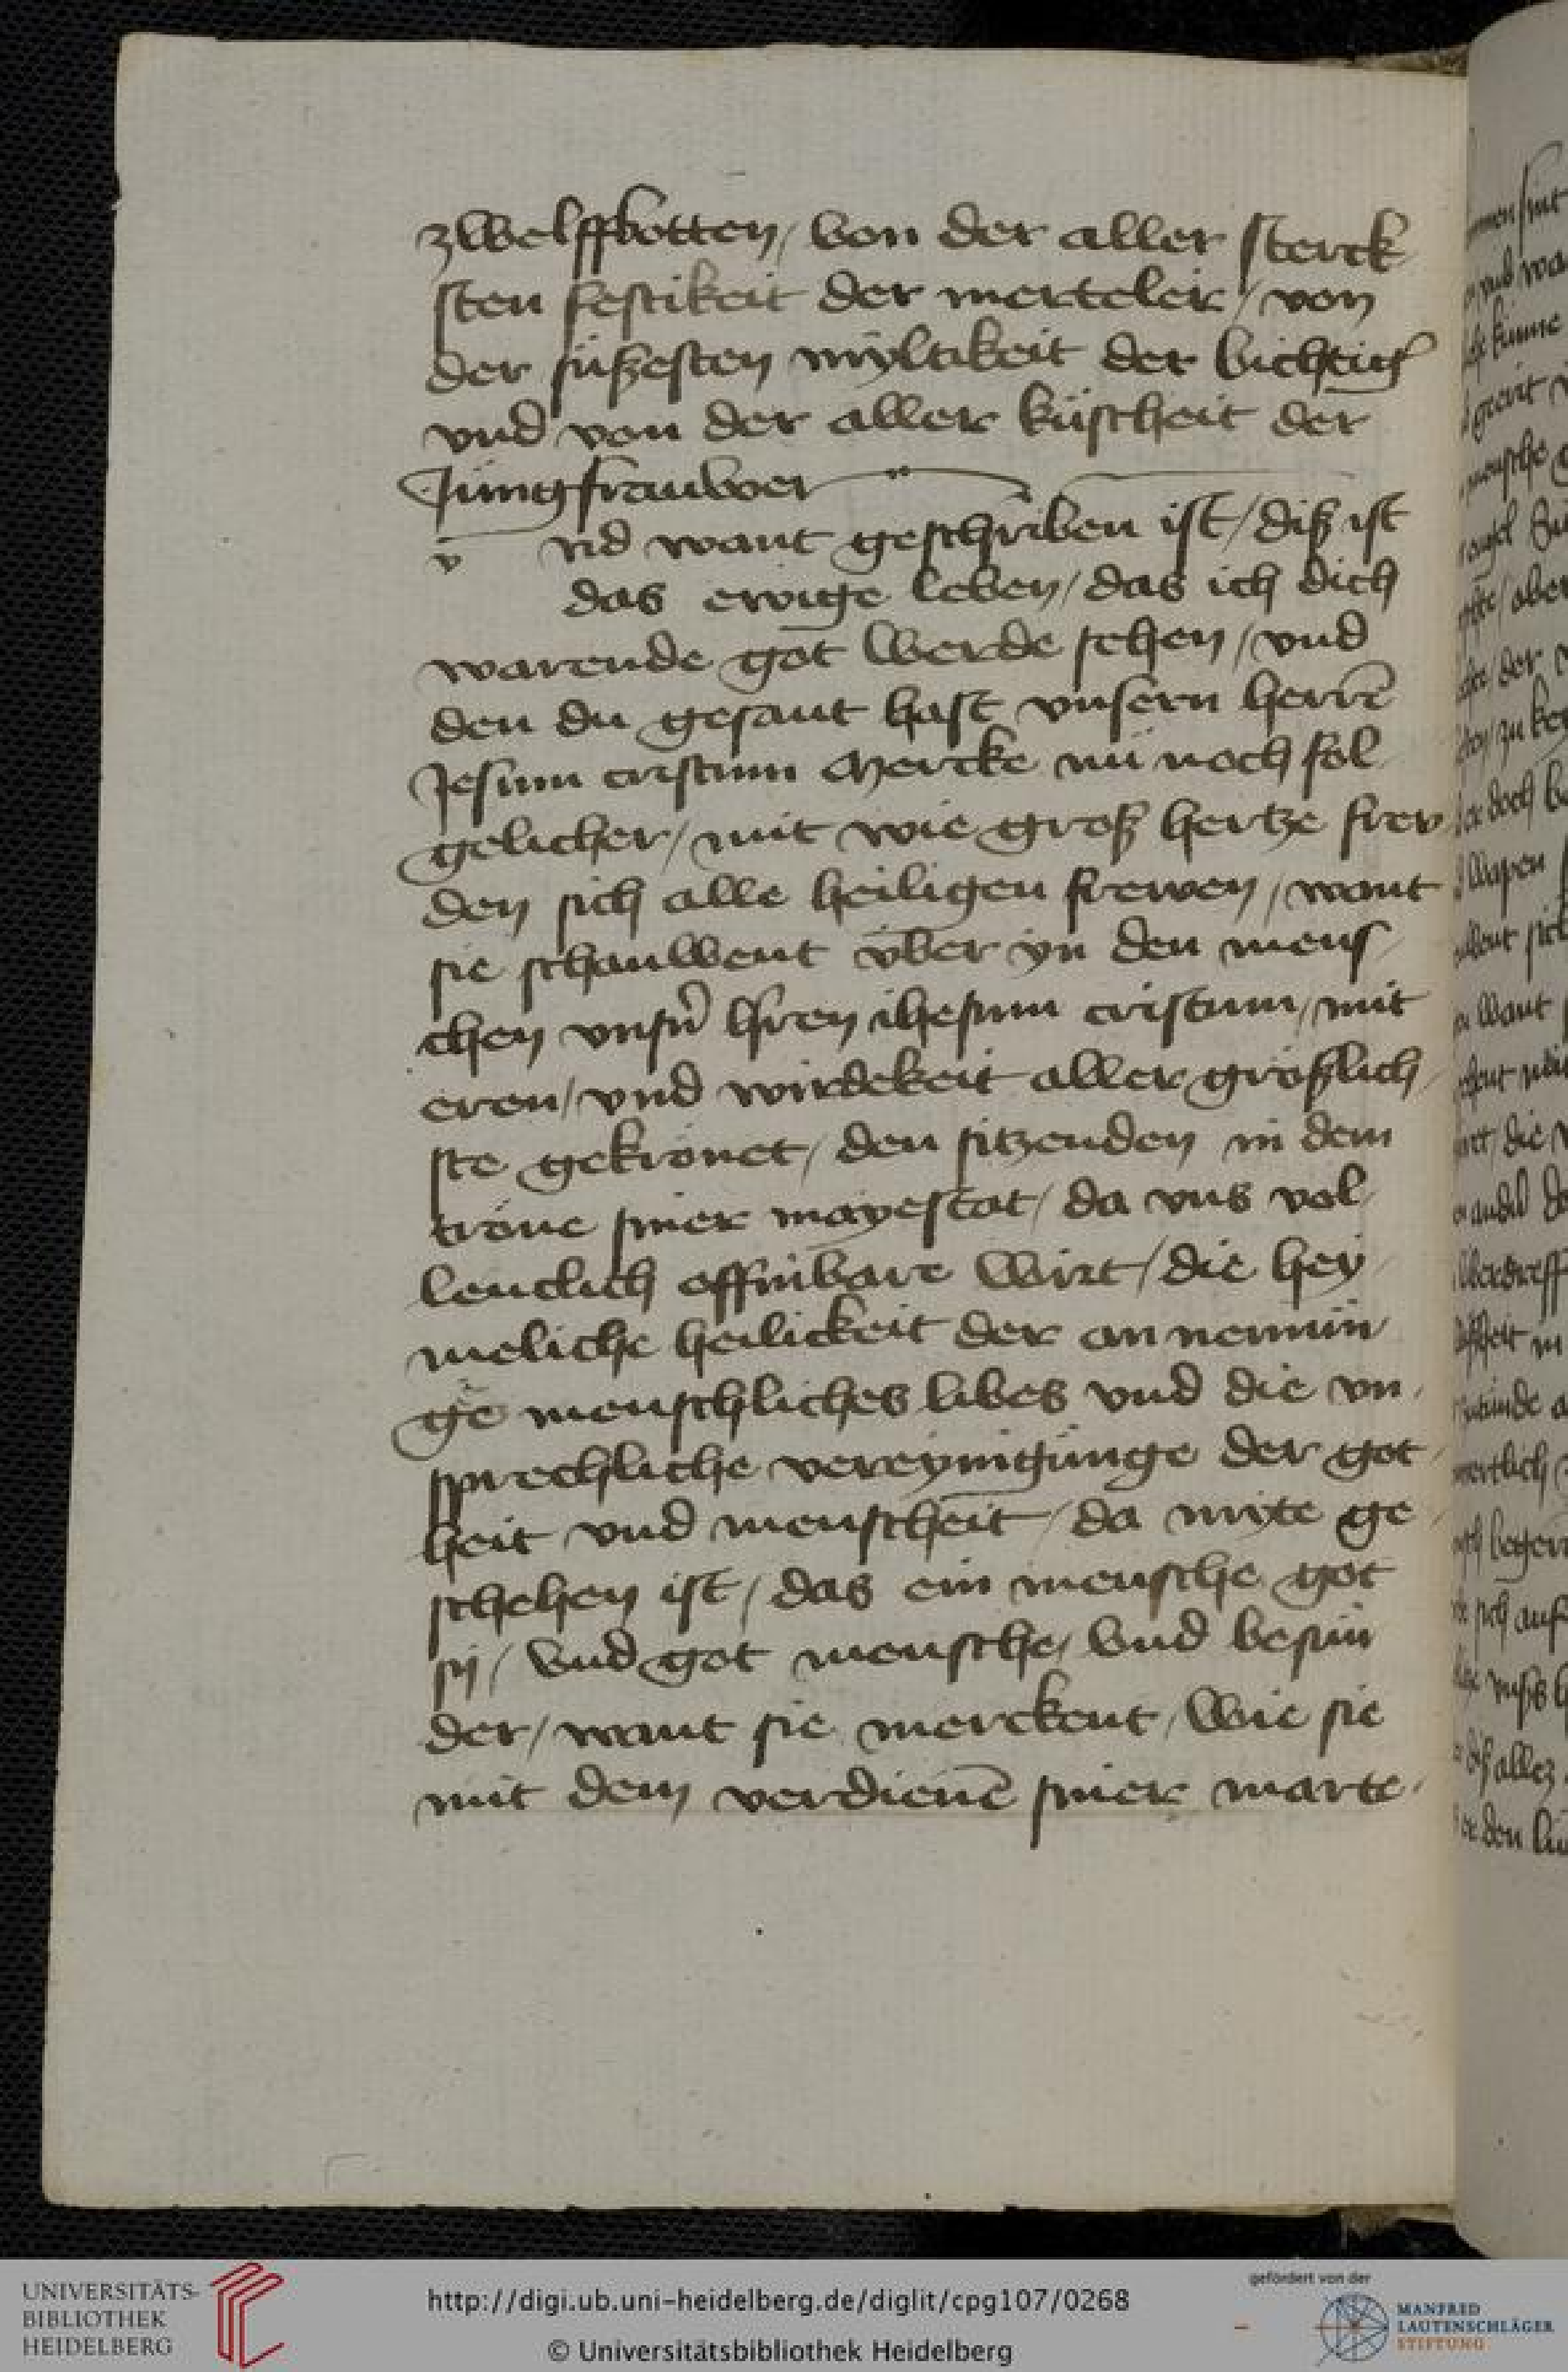 zwelffbotten / von der aller sterck
sten festikeit der merteler / von
der süßesten myltikeit der bichtig͛
vnd von der aller küscheit der
Jungfrauwer
v nd want geschriben ist / diß ist
das ewige leben / das ich dich
warende got werde sehen / vnd
den du gesant hast vnsern herrē
Jesum cristum Mercke nü noch fol
gelicher / mit wie groß hertze frew
den sich alle heiligen frewen / want
sie schauwent über yn den mens /
chen vnsn̄ hren ihesum cristum / mit
eren / vnd wirdekeit aller größlich /
ste gekrönet / den sitzenden in dem
tröne siner mayestat / da vns vol /
lenclich offinbare wirt / die hey /
meliche heilickeit der an nemün /
ge menschliches libes vnd die vn /
sprechliche vereynigünge der got /
heit vnd menscheit / da myte ge /
schehen ist / das ein mensche got
sy / vnd got mensche / vnd besün
der / want sie merckent / wie sie
mit dem verdienē siner marte /
UNIVERSITÄTS-
BIBLIOTHEK
HEIDELBERG
http://digi.ub.uni-heidelberg.de/diglit/cpg107/0268
© Universitätsbibliothek Heidelberg
gefördert von der
MANFRED
LAUTENSCHLÄGER
STIFTUNG